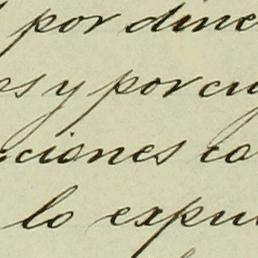 por dine
es y por cu
ciones ca
lo expu